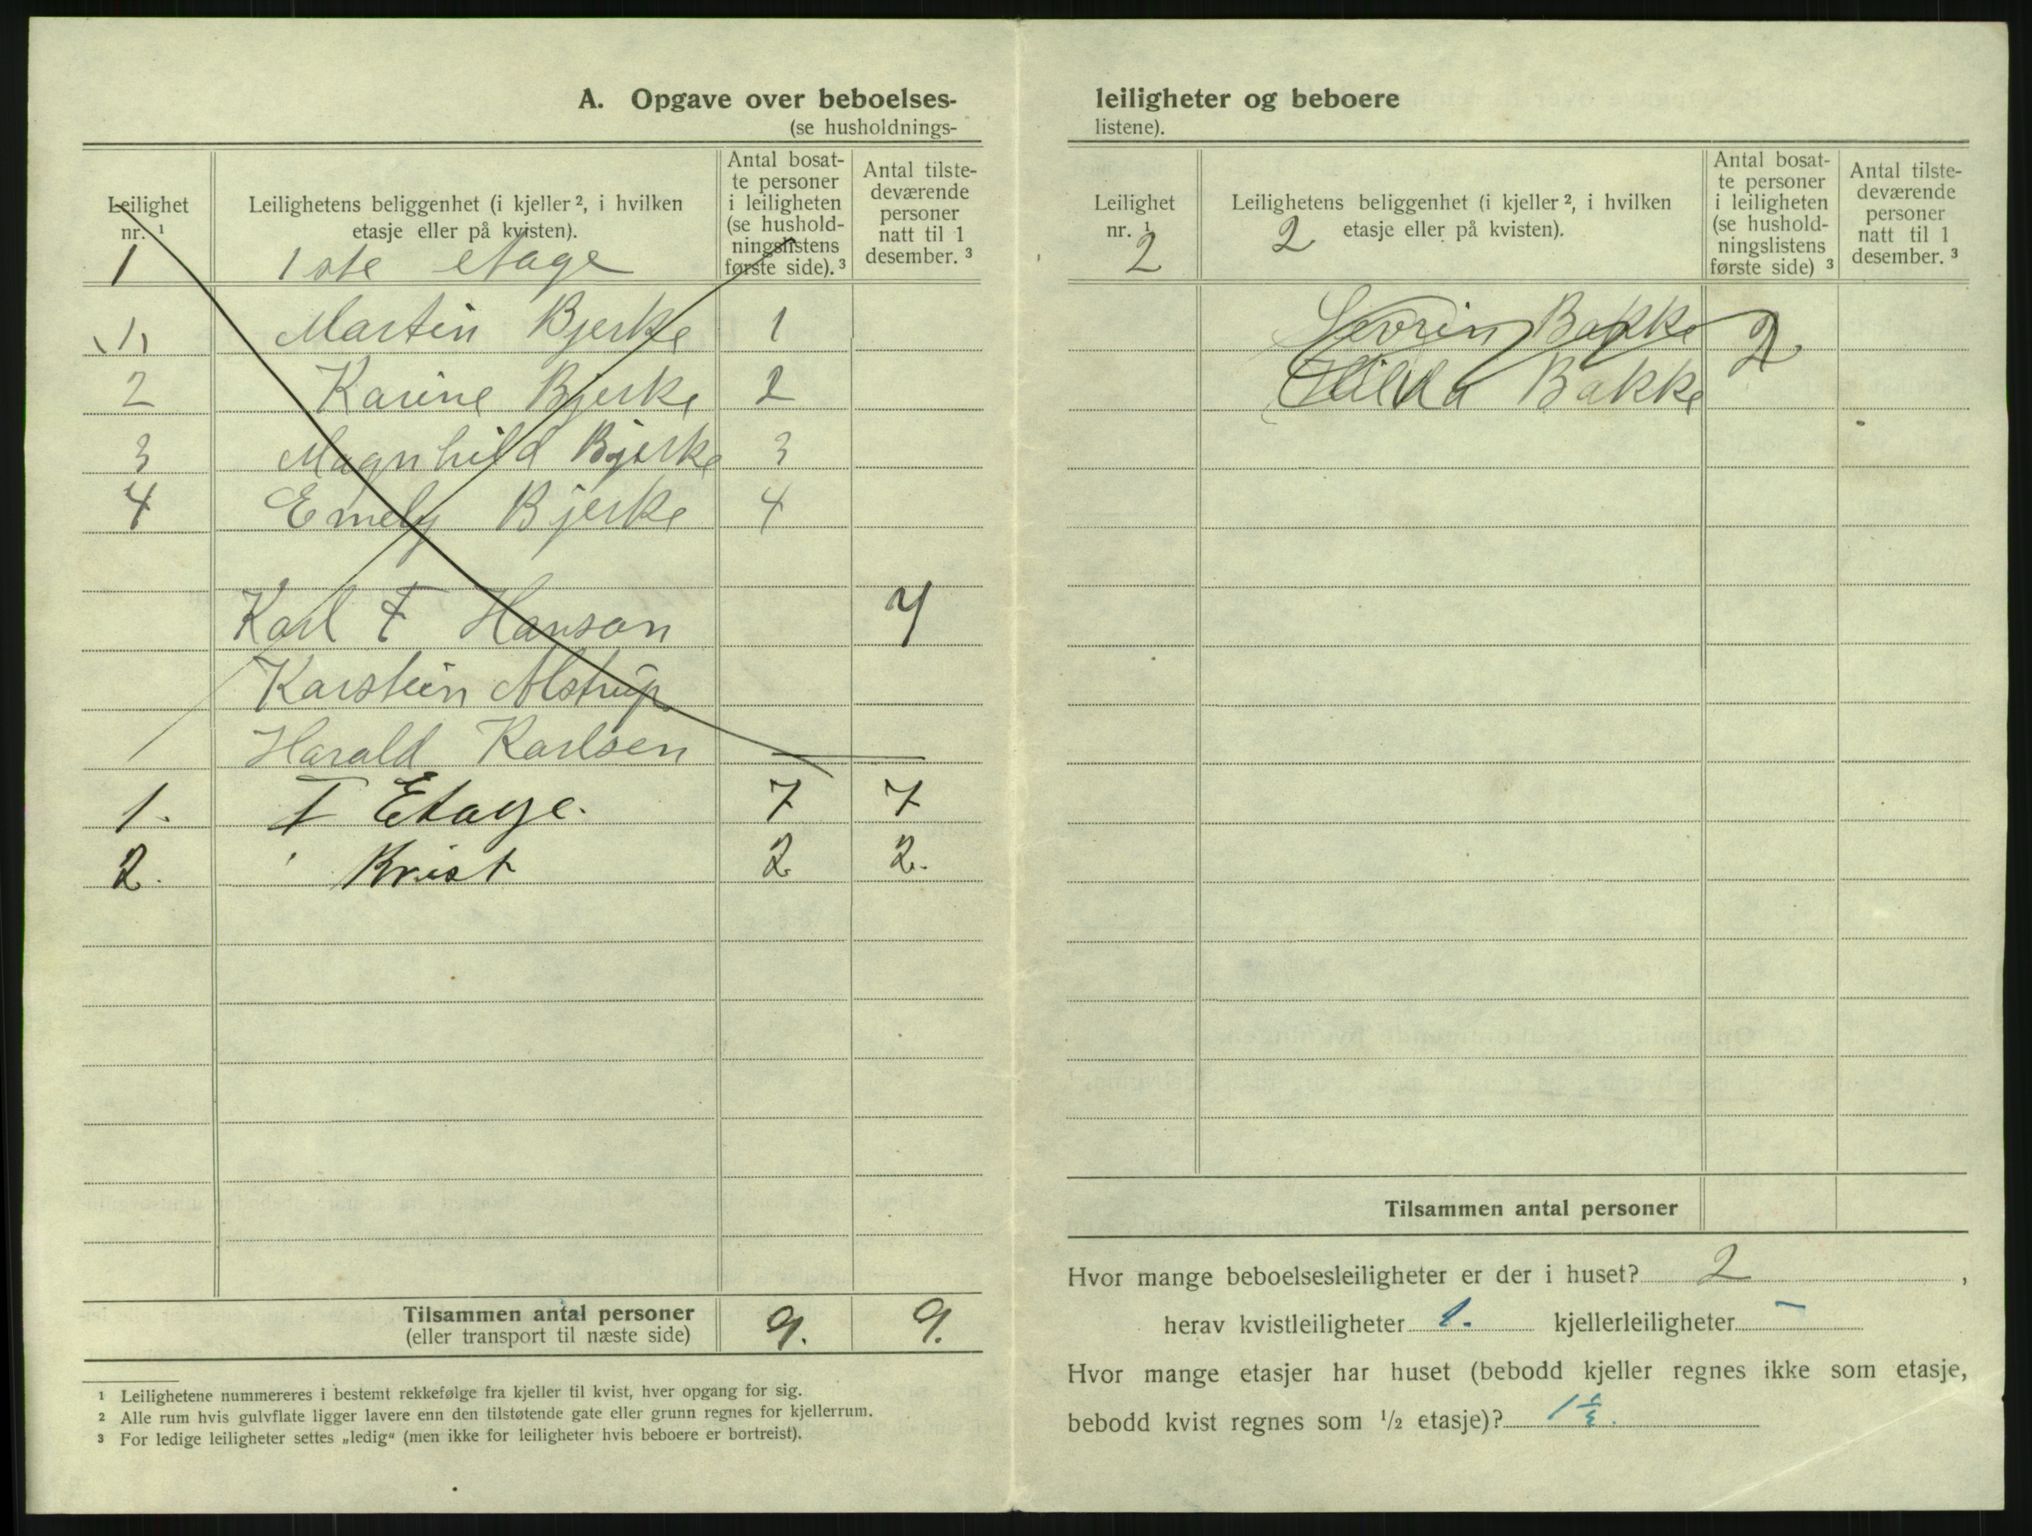 A. Opgave over beboelses-
(se husholdnings-
Leilighet nr. ¹
Leilighetens beliggenhet (i kjeller ², i hvilken etasje eller på kvisten).
Antal bosat-
te personer
i leiligheten
(se hushold-
ningslistens
første side). ³
Antal tilste-
deværende
personer
natt til 1
desember. ³
1 1ste etage
1 Martin Bjerke 1
2 Karine Bjerke 2
3 Magnhild Bjerke 3
4 Emely Bjerke 4
Karl F Hanson
Karstein Alstrup
Harald Karlsen
1. I Etage. 7 7
2. Kvist 2 2.
Tilsammen antal personer 9. 9.
(eller transport til næste side)
¹ Leilighetene nummereres i bestemt rekkefølge fra kjeller til kvist, hver opgang for sig.
² Alle rum hvis gulvflate ligger lavere enn den tilstøtende gate eller grunn regnes for kjellerrum.
³ For ledige leiligheter settes „ledig“ (men ikke for leiligheter hvis beboere er bortreist).
leiligheter og beboere
listene).
Leilighet nr. ¹
Leilighetens beliggenhet (i kjeller ², i hvilken etasje eller på kvisten).
Antal bosat-
te personer
i leiligheten
(se hushold-
ningslistens
første side) ³
Antal tilste-
deværende
personer
natt til 1
desember. ³
2 2
Sevrin Bakke 2
Hilda Bakke
Tilsammen antal personer
Hvor mange beboelsesleiligheter er der i huset? 2 ,
herav kvistleiligheter 1. kjellerleiligheter —
Hvor mange etasjer har huset (bebodd kjeller regnes ikke som etasje,
bebodd kvist regnes som ½ etasje)? 1½.